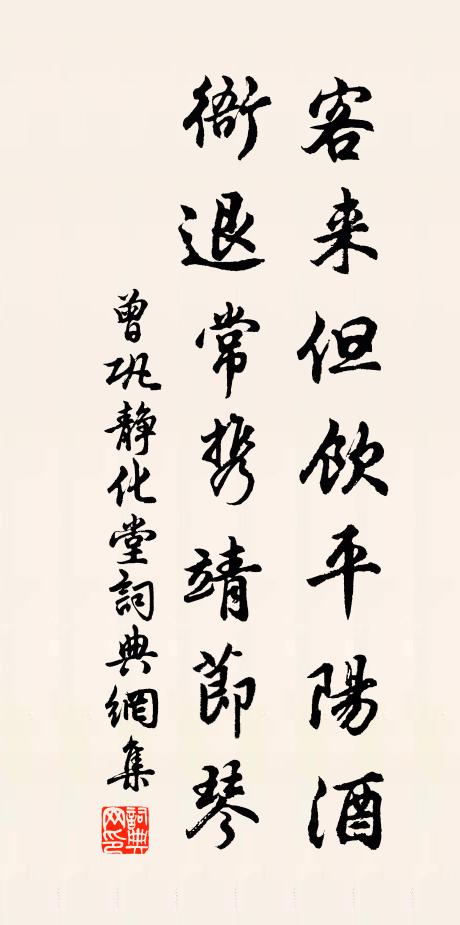 客来但飲平陽酒
衙退常携靖節琴
曾巩静化堂詞典網集
詞典网印